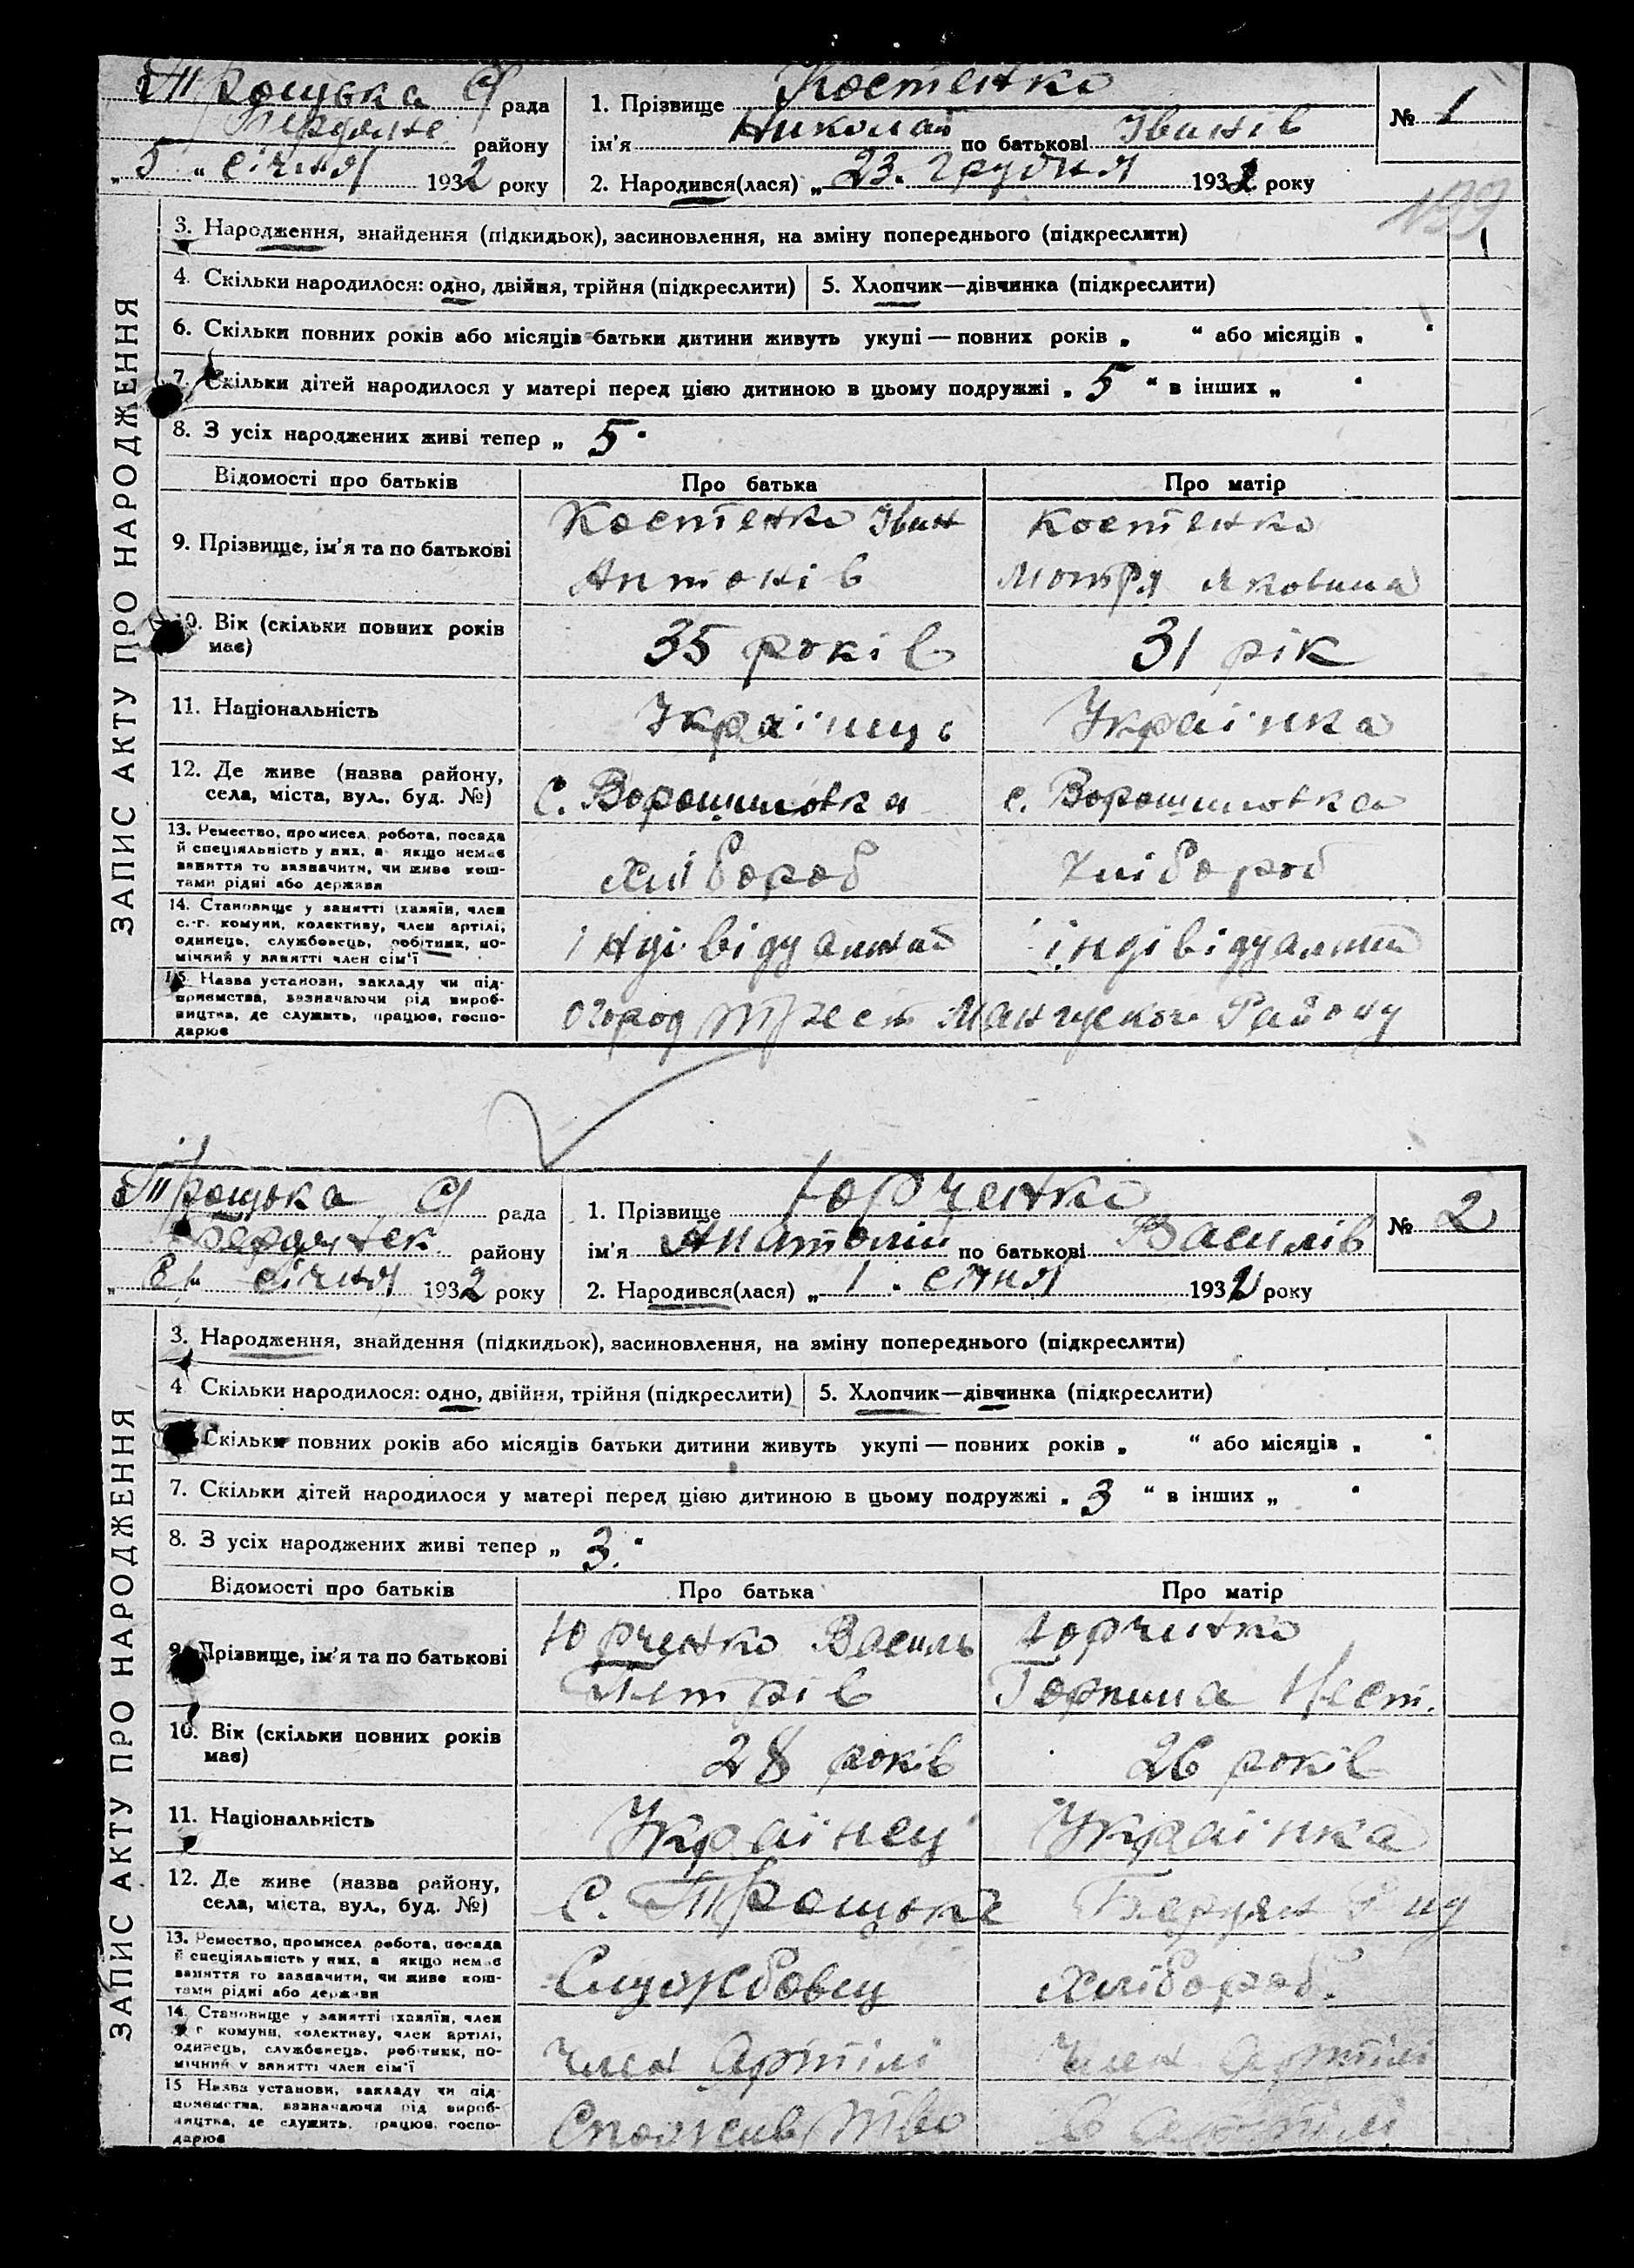 Троцька С/ рада
Бердянс. району
„ 5 “ січня 1932 року
1. Прізвище Костенко
ім’я Николай по батькові Іванів
2. Народився(лася) „ 23. грудня 1932 року
№ 1
199
ЗАПИС АКТУ ПРО НАРОДЖЕННЯ
3. Народження, знайдення (підкидьок), засиновлення, на зміну попереднього (підкреслити)
4. Скільки народилося: одно, двійня, трійня (підкреслити) 5. Хлопчик—дівчинка (підкреслити)
6. Скільки повних років або місяців батьки дитини живуть укупі — повних років „ “ або місяців „ “
7. Скільки дітей народилося у матері перед цією дитиною в цьому подружжі „ 5 “ в інших „ “
8. З усіх народжених живі тепер „ 5 “
Відомості про батьків Про батька Про матір
9. Прізвище, ім’я та по батькові
Костенко Іван
Антонів
Костенко
Мотря Яковина
10. Вік (скільки повних років
має)
35 років
31 рік
11. Національність
Українць
Українка
12. Де живе (назва району,
села, міста, вул., буд. №)
С. Ворошиловка
с. Ворошиловка
13. Ремество, промисел, робота, посада
й спеціяльність у них, а якщо немає
заняття то зазначити, чи живе кош-
тами рідні або держави
хлібороб
Хлібороб
14. Становище у занятті (хазяїн, член
с.-г. комуни, колективу, член артілі,
одинець, службовець, робітник, по-
мічний у занятті член сім’ї
індівідуалний
індівідуалний
15. Назва установи, закладу чи під-
приємства, зазначаючи рід вироб-
ництва, де служить, працює, госпо-
дарює
огород Трест Мангуского Району
Троцька С/ рада
Бердянск. району
„ 8 “ січня 1932 року
1. Прізвище Юрченко
ім’я Анатолій по батькові Василів
2. Народився(лася) „ 1. січня 1932 року
№ 2
ЗАПИС АКТУ ПРО НАРОДЖЕННЯ
3. Народження, знайдення (підкидьок), засиновлення, на зміну попереднього (підкреслити)
4 Скільки народилося: одно, двійня, трійня (підкреслити) 5. Хлопчик—дівчинка (підкреслити)
Скільки повних років або місяців батьки дитини живуть укупі — повних років „ “ або місяців „ “
7. Скільки дітей народилося у матері перед цією дитиною в цьому подружжі „ 3 “ в інших „ “
8. З усіх народжених живі тепер „ 3. “
Відомості про батьків Про батька Про матір
9. Прізвище, ім’я та по батькові
Юрченко Василь
Петрів
Юрченко
Горпина Нест.
10. Вік (скільки повних років
має)
28 років
26 років
11. Національність
Українец
Українка
12. Де живе (назва району,
села, міста, вул., буд. №)
С. Троцьке Бердян Р-ну
13. Ремество, промисел, робота, посада
й спеціяльність у них, а якщо немає
заняття то зазначити, чи живе кош-
тами рідні або держави
Службовец
Хлібороб.
14. Становище у занятті (хазяїн, член
с.-г. комуни, колективу, член артілі,
одинець, службовець, робітник, по-
мічний у занятті член сім’ї
Член Артілі
Член Артілі
15 Назва установи, закладу чи під-
приємства, зазначаючи рід вироб-
ництва, де служить, працює, госпо-
дарює
Спожив Т-во
В Артілі